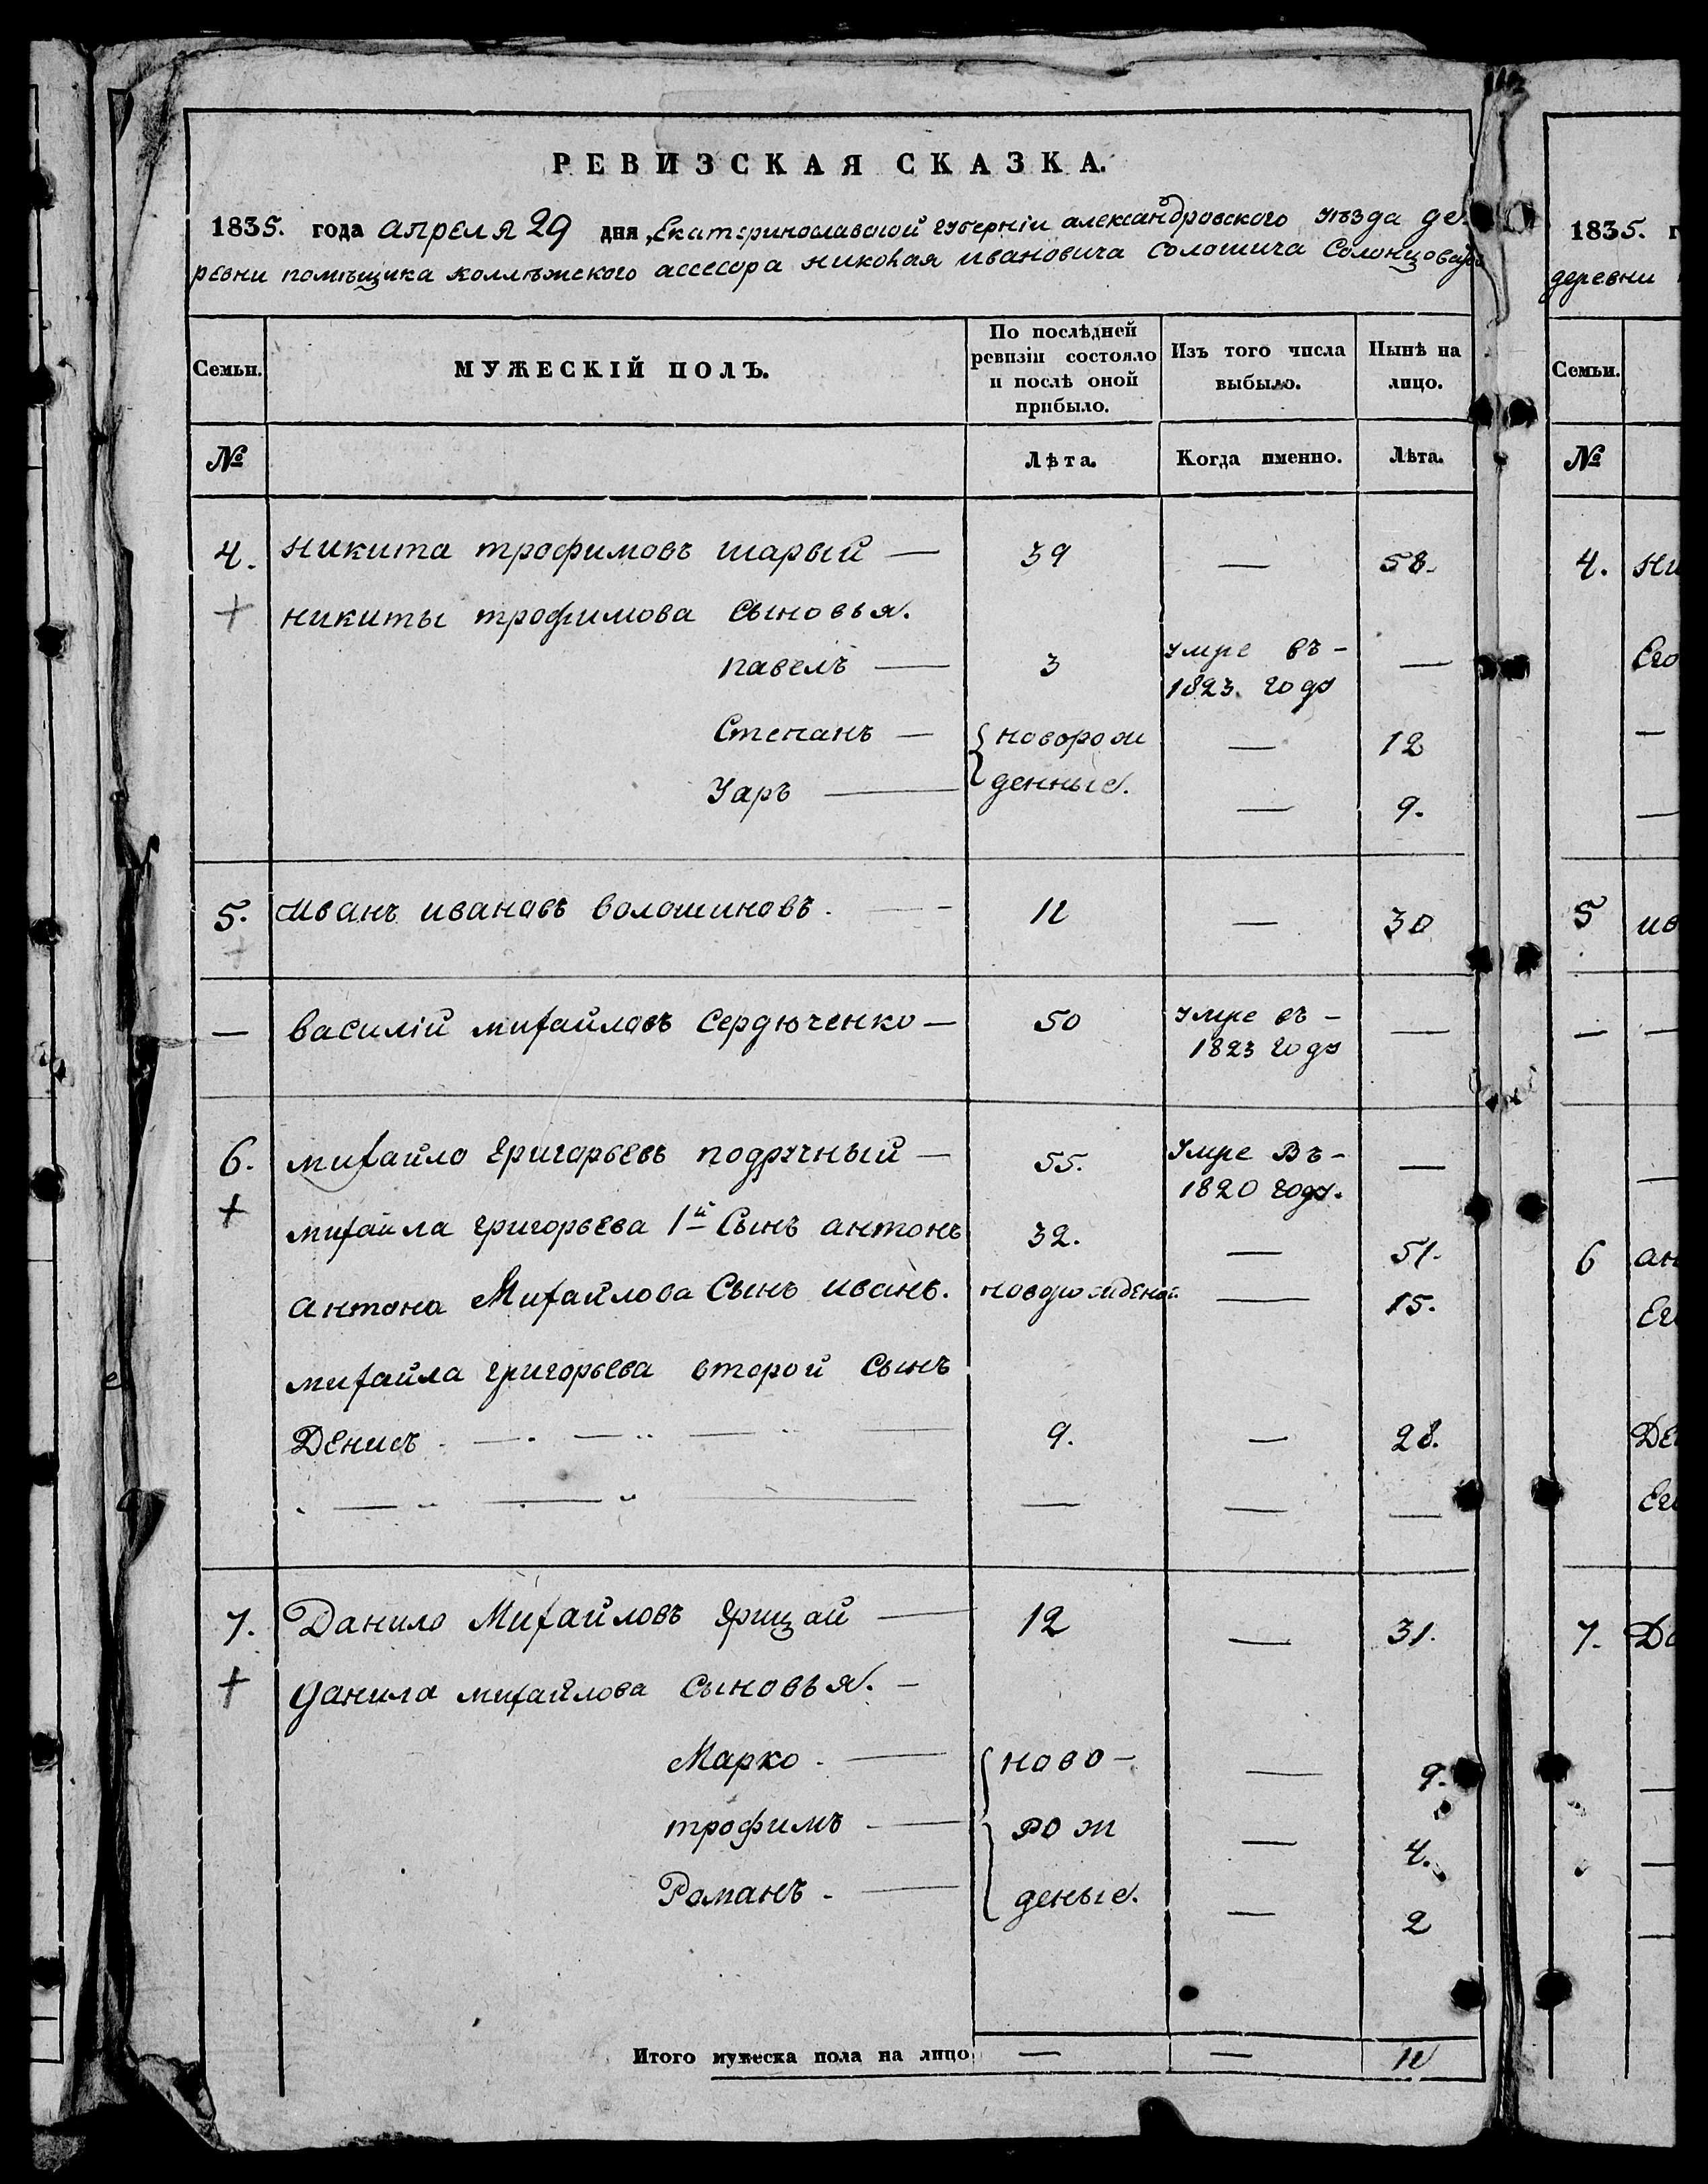 РЕВИЗСКАЯ СКАЗКА.
1835. года апреля 29 дня, Екатеринославской губерніи александровского уѣзда де-
ревни помѣщика коллѣжского ассесора николая ивановича Солошича Солонцовой
Семьи. МУЖЕСКІЙ ПОЛЪ. По послѣдней ревизіи состояло и послѣ оной прибыло. Изъ того числа выбыло. Нынѣ на лицо.
№ Лѣта. Когда именно. Лѣта.
4. никита трофимовъ шарый — 39 — 58.
+ никиты трофимова сыновья.
павелъ — 3 умре въ - 1823. году —
Степанъ — новорож — 12
Уаръ — денные. — 9.
5. Иванъ ивановъ волошиновъ. — 11 — 30
+
— василій михайловъ Сердюченко — 50 умре въ - 1823 году —
6. михайло григорьевъ подручный — 55. Умре Въ - 1820 году. —
+ михайла григорьева 1й Сынъ антонъ 32. — 51.
антона Михайлова Сынъ иванъ. новорожденой — 15.
михайла григорьева второй сынъ
Денисъ. — 9. — 28.
— — — —
7. Данило Михайловъ грицай — 12 — 31.
+ данила михайлова сыновья. -
Марко. — ново- — 9.
трофимъ — рож — 4.
Романъ. — деные. — 2
Итого мужеска пола на лицо — — 10
1835. г
деревни
Семьи.
№
4. Ни
Его
—
—
5 ив
— —
—
6 ан
Ег
Де
Ег
7. Да
—
—
—